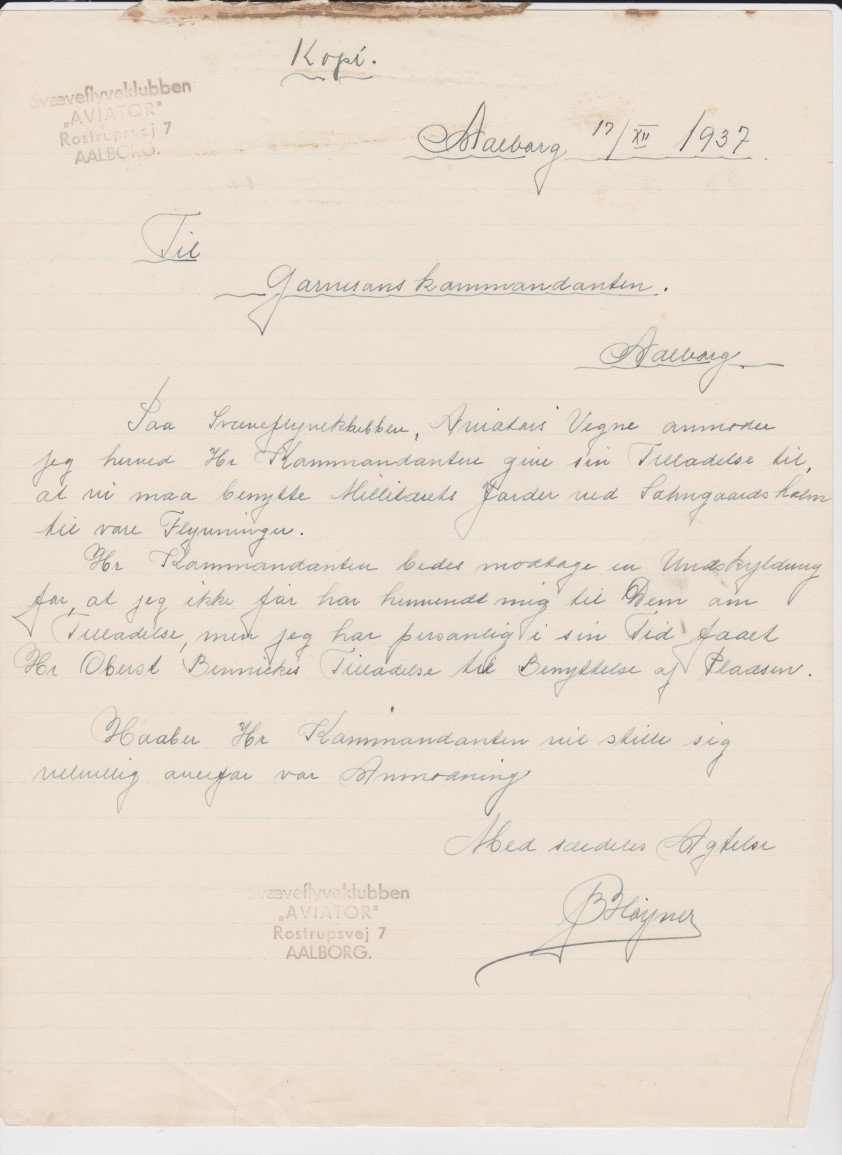 Kopi.
Svæveflyveklubben
„AVIATOR"
Rostrupsvej 7
AALBORG.
Aalborg 17/XII 1937.
Til
Garnisonskommandanten.
Aalborg.
Paa Svæveflyveklubben, Aviators' Vegne anmoder
jeg herved Hr Kommandanten give sin Tilladelse til,
at vi maa benytte Millitærets Jorder ved Sohngaardsholm
til vore Flyvninger.
Hr Kommandanten bedes modtage en Undskyldning
for, at jeg ikke før har henvendt mig til Dem om
Tilladelse, men jeg har personlig i sin Tid faaet
Hr Oberst Bennickes Tilladelse til Benyttelse af Pladsen.
Haaber Hr Kommandanten vil stille sig
velvillig overfor vor Anmodning
Med særdeles Agtelse
Svæveflyveklubben
„AVIATOR"
Rostrupsvej 7
AALBORG.